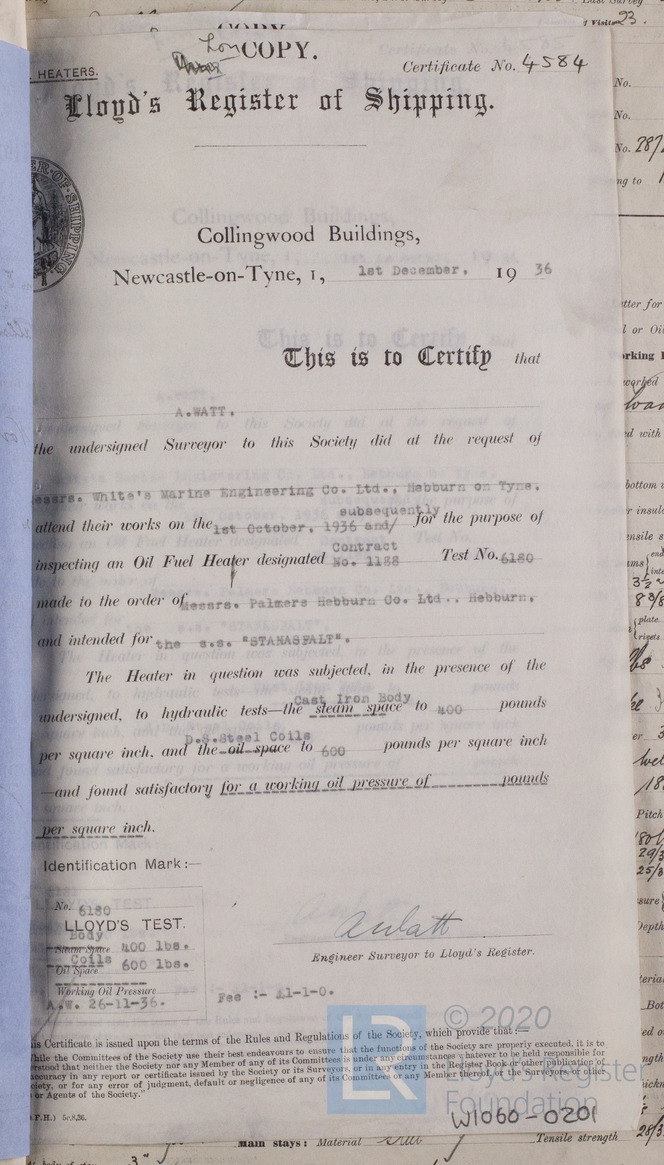 COPY.
Lon COPY.
HEATERS.
Certificate No. 4584
Lloyd's Register of Shipping.
Collingwood Buildings,
Newcastle-on-Tyne, 1, 1st December, 19 36
This is to Certify that
A.WATT.
the undersigned Surveyor to this Society did at the request of
essrs. White's Marine Engineering Co. Ltd., Hebburn on Tyne,
subsequently
attend their works on the 1st October, 1936 and/ for the purpose of
inspecting an Oil Fuel Heater designated Contract No. 1188 Test No. 6180
made to the order of Messrs. Palmers Hebburn Co. Ltd., Hebburn,
and intended for the s.s. "STANASFALT".
The Heater in question was subjected, in the presence of the
Cast Iron Body
undersigned, to hydraulic tests—the steam space to 400 pounds
D.S.Steel Coils
per square inch, and the oil space to 600 pounds per square inch
—and found satisfactory for a working oil pressure of pounds
per square inch.
Identification Mark:—
No. 6180
LLOYD'S TEST.
Body
Steam Space 400 lbs.
Coils
Oil Space 600 lbs.
Working Oil Pressure
A.W. 26-11-36.
AWatt
Engineer Surveyor to Lloyd's Register.
Fee :- £1-1-0.
is Certificate is issued upon the terms of the Rules and Regulations of the Society, which provide that:—
hile the Committees of the Society use their best endeavours to ensure that the functions of the Society are properly executed, it is to
rstood that neither the Society nor any Member of any of its Committees is under any circumstances whatever to be held responsible for
accuracy in any report or certificate issued by the Society or its Surveyors, or in any entry in the Register Book or other publication of
ciety, or for any error of judgment, default or negligence of any of its Committees or any Member thereof, or the Surveyors, or other
or Agents of the Society."
.F.H.) 5c.8,36.
© 2020
LR
Lloyd's Register
Foundation
W1060-0201
main stays: Material steel Tensile strength 28/3